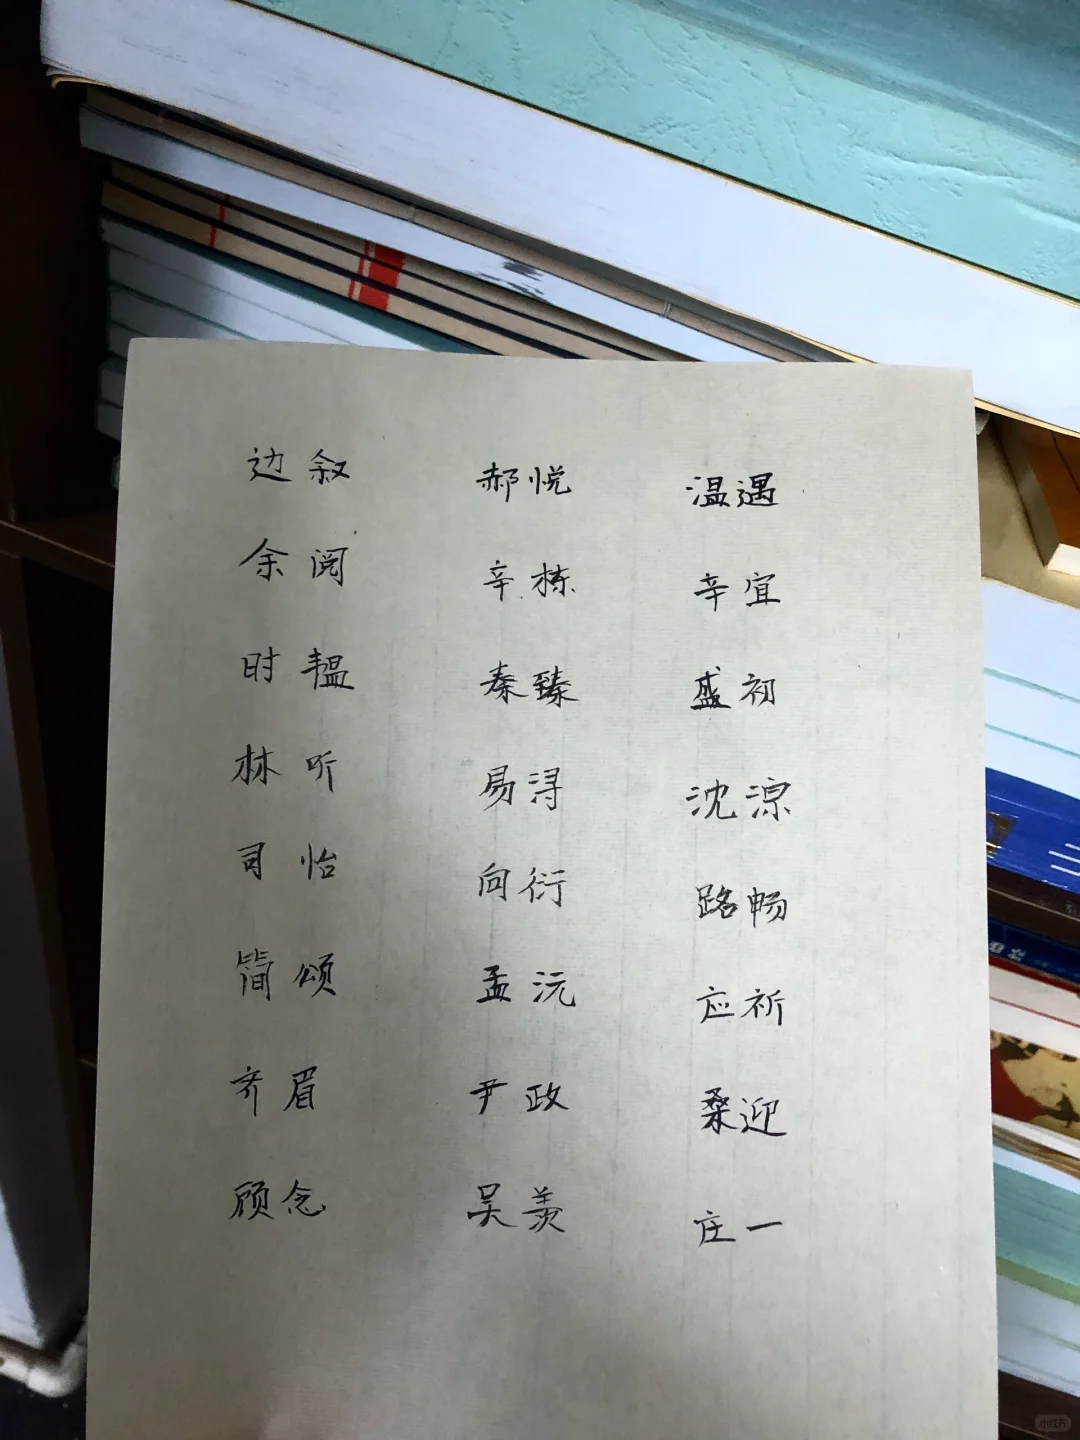 边叙 郝悦 温遇
余阅 辛栋 辛宜
时韫 秦臻 盛初
林听 易浔 沈淙
司怡 向衍 路畅
简颂 孟沅 应祈
齐眉 尹政 桑迎
顾念 吴羡 庄一
小红书